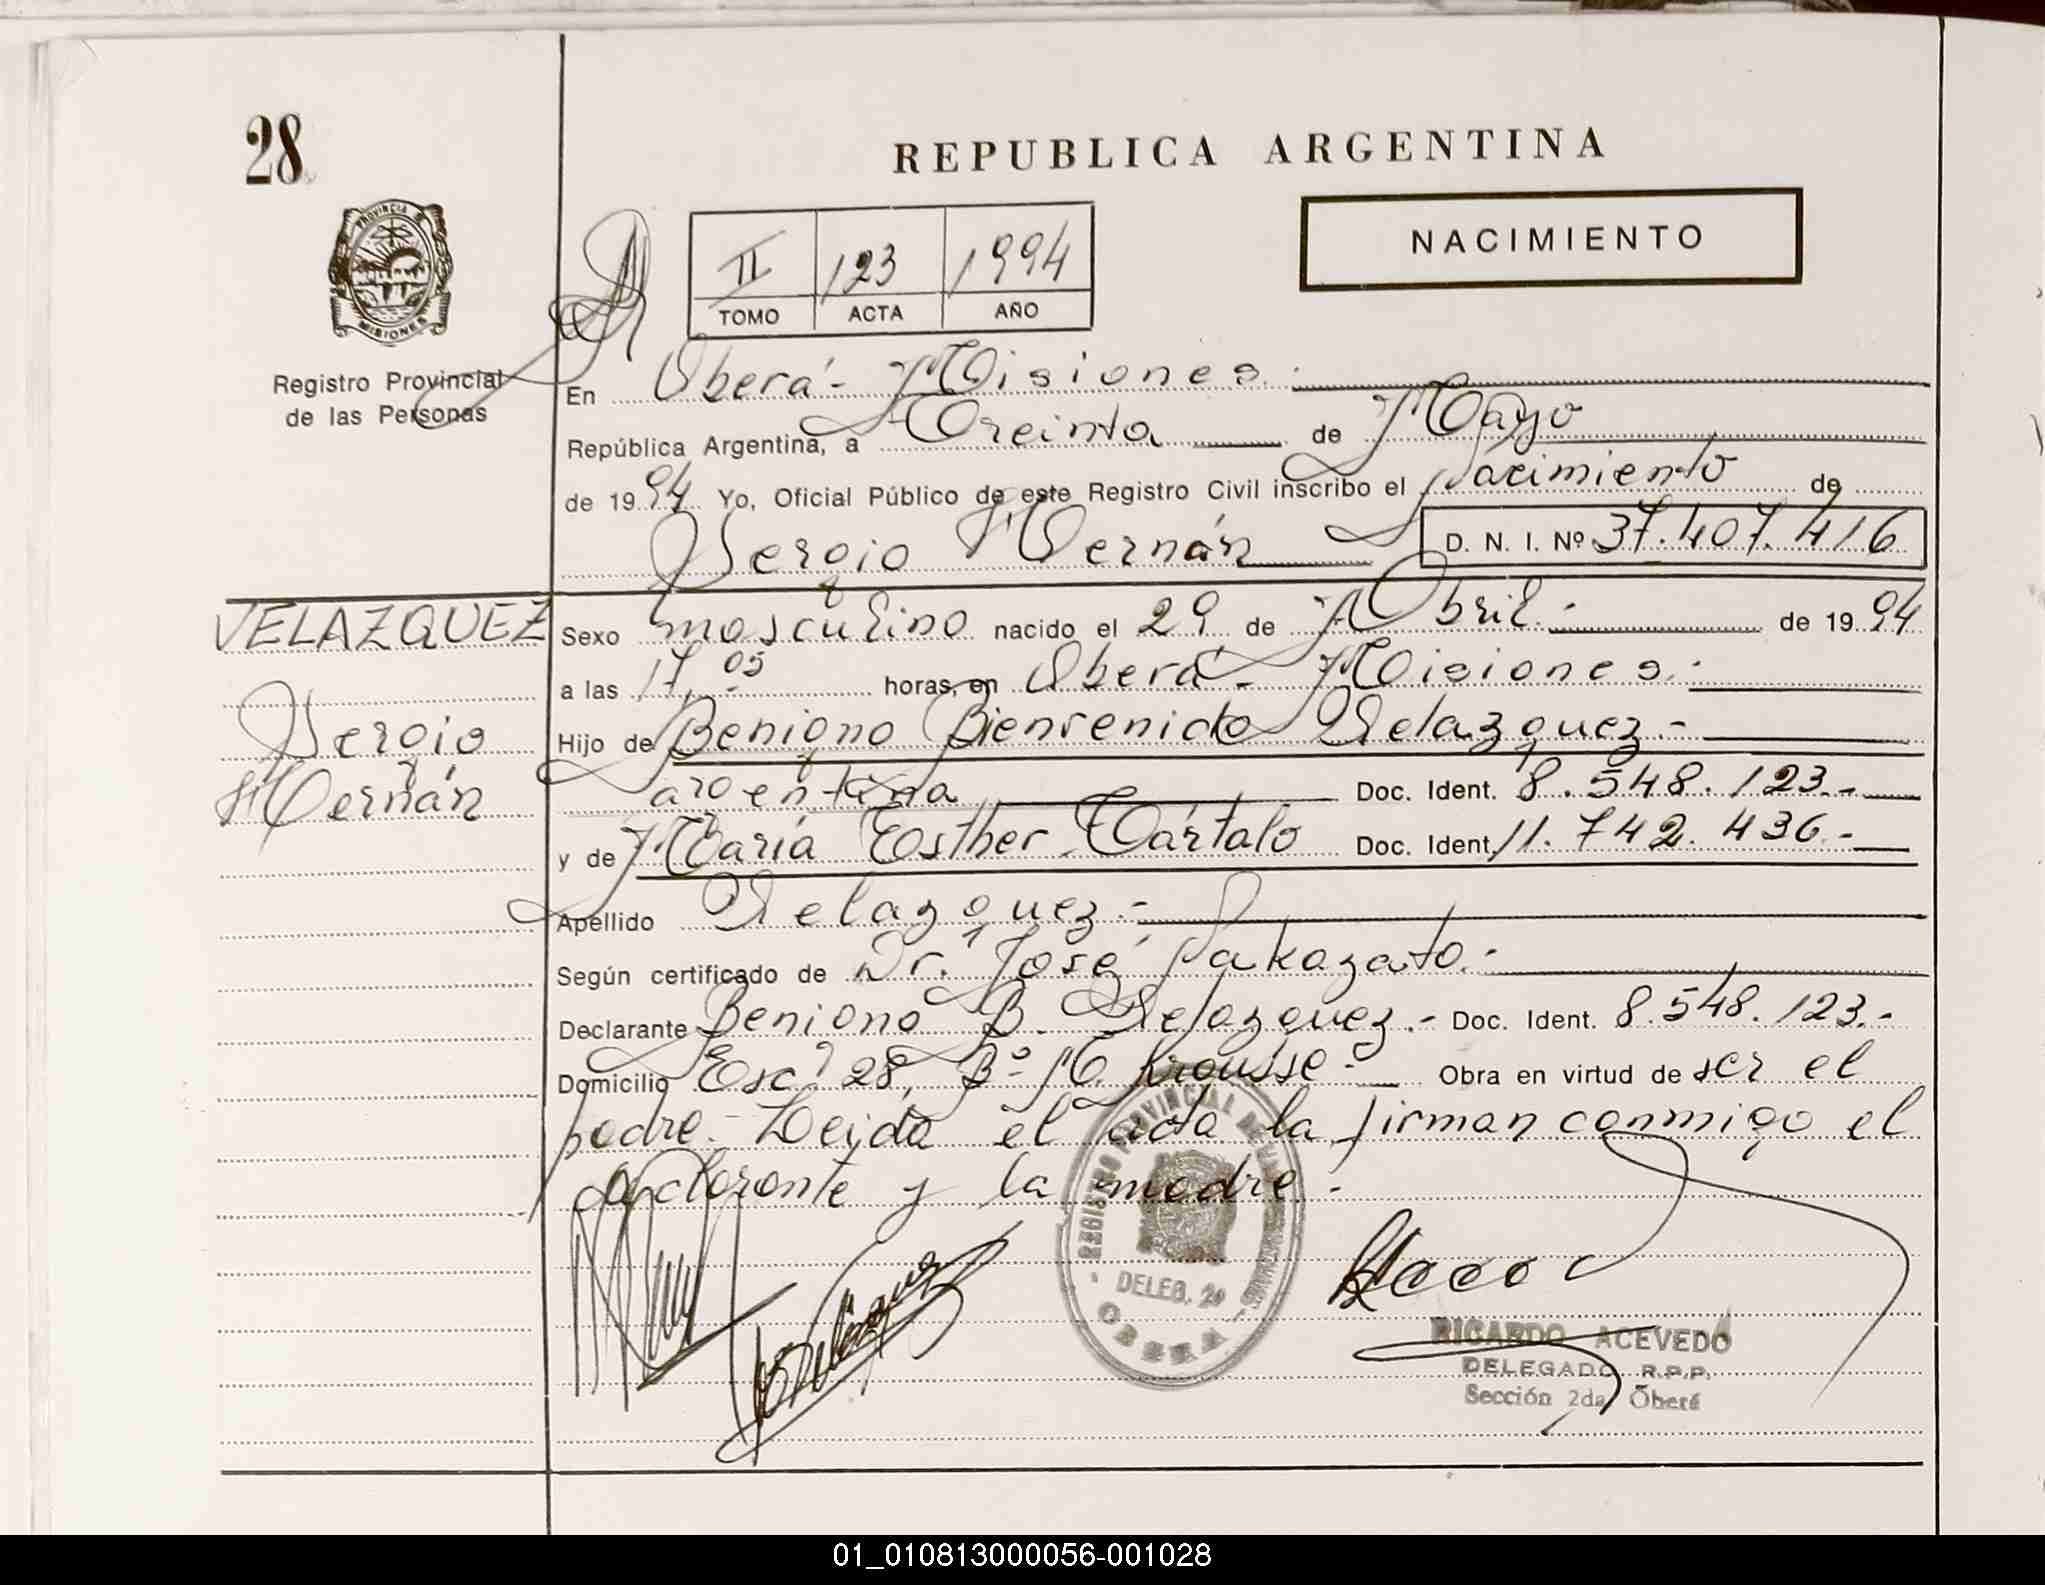 28
REPUBLICA ARGENTINA
NACIMIENTO
II 123 1994
TOMO ACTA AÑO
PROVINCIA DE
MISIONES
Registro Provincial
de las Personas
En Oberá - Misiones.
República Argentina, a Treinta de Mayo
de 1994 Yo, Oficial Público de este Registro Civil inscribo el Nacimiento de
Sergio Hernán D. N. I. Nº 37.407.416
VELAZQUEZ
Sergio
Hernán
Sexo masculino nacido el 29 de Abril.- de 1994
a las 17,05 horas, en Oberá - Misiones.-
Hijo de Benigno Bienvenido Velazquez.-
argentina Doc. Ident. 8.548.123.-
y de María Esther Tártalo Doc. Ident. 11.742.436.-
Apellido Velazquez.-
Según certificado de Dr. José Sakazato.-
Declarante Benigno B. Velazquez.- Doc. Ident. 8.548.123.-
Domicilio Esc. 28, Bº M. Krausse.- Obra en virtud de ser el
padre.- Leída el acta la firman conmigo el
declarante y la madre.-
REGISTRO PROVINCIAL DE LAS PERSONAS
DELEG. 2ª
OBERA
RICARDO ACEVEDO
DELEGADO R.P.P.
Sección 2da Oberá
01_010813000056-001028